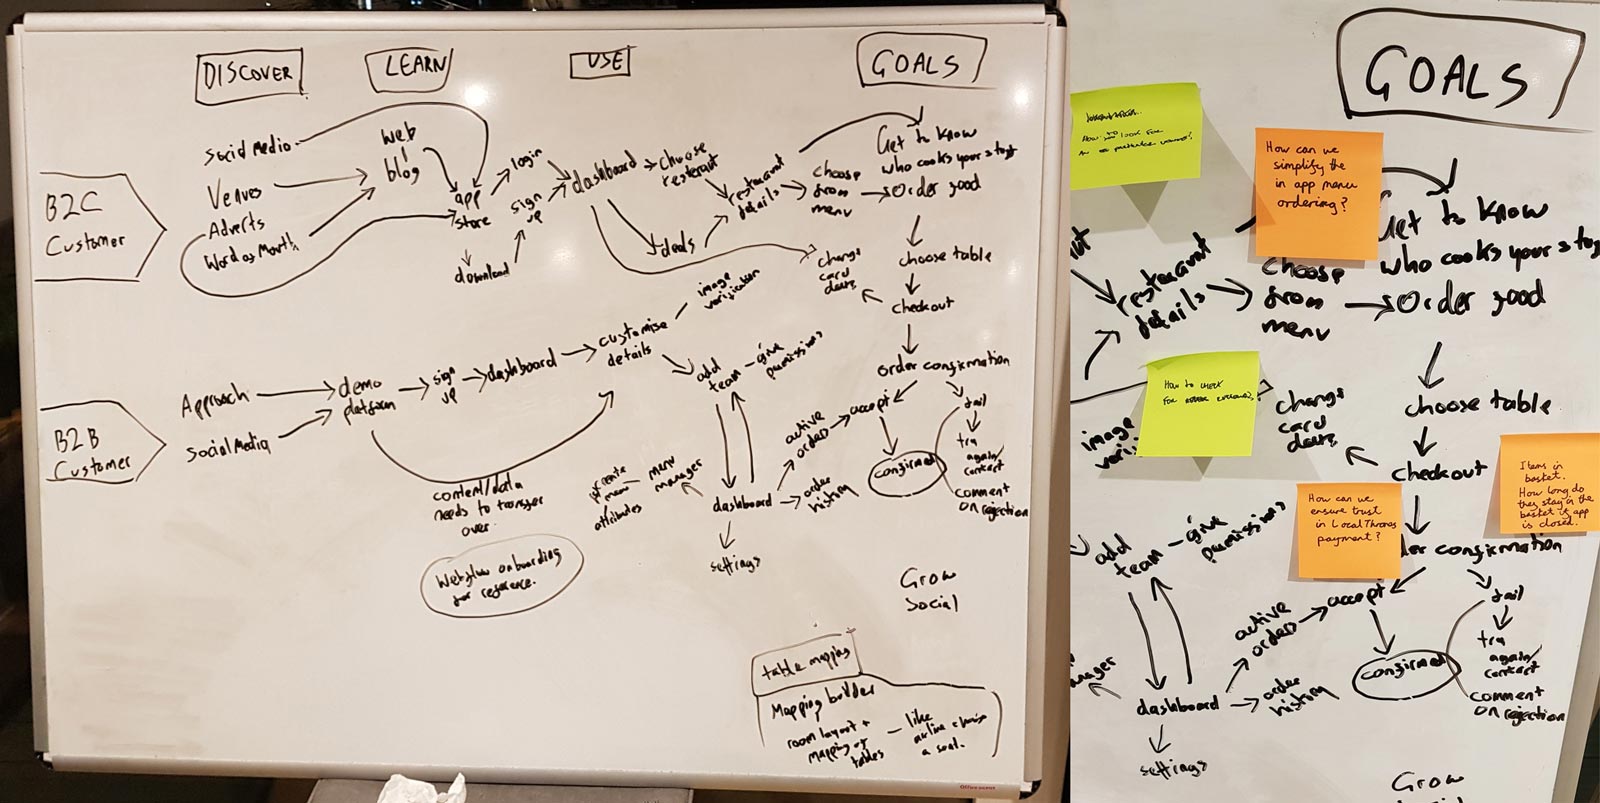 DISCOVER
LEARN
USE
GOALS
B2C
Customer
Social Media
Venues
Adverts
Word of Mouth
Web
blog
app
store
download
login
sign
up
dashboard
choose
resteraut
deals
resteraunt
details
choose
from
menu
Get to know
who cooks your
Order food
choose table
checkout
change
card
order confirmation
accept
confirmed
fail
try
again/
contact
comment
on rejection
B2B
Customer
Approach
Social Media
demo
platform
sign
up
dashboard
customise
details
image
verification
add
team - give
permissions
content/data
needs to transfer
over.
Webflow onboarding
for reference.
menu
manager
create
menu
attributes
active
orders
dashboard
order
history
settings
Grow
Social
table mapping
Mapping builder
room layout +
mapping of
tables
like
airline
a seat.
GOALS
How look for
How can we
simplify the
in app menu
ordering?
Get to know
who cooks your
resteraunt
details
choose
from
menu
Order food
How to check
for
image
change
card
choose table
checkout
Items in
basket.
How long do
they stay in the
basket if app
is closed.
How can we
ensure trust
in Local Thros
payment?
add
team - give
permissions
confirmation
accept
confirmed
fail
try
again/
contact
comment
on rejection
active
orders
dashboard
order
history
settings
Grow